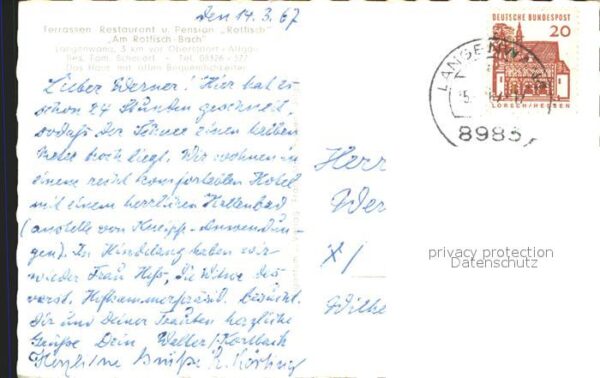 den 14. 3. 67
Terrassen Restaurant u. Pension „Rotfisch"
„Am Rotfisch-Bach"
Langenwang, 3 km vor Oberstdorf - Allgäu
Bes. Fam. - Tel. 08326 - 327
Das Haus mit allen Bequemlichkeiten
Lieber Werner! Hier hat es
schon 24 Stunden geschneit,
sodaß der Schnee einen halben
Meter hoch liegt. Wir wohnen in
einem recht komfortablen Hotel
mit einem herrlichen Hallenbad
(anstelle von Kneipp-Anwendun-
gen). In Hindelang haben wir
wieder Frau Heß, die Witwe des
verst. besucht.
Dir und Deiner Trauten herzliche
Grüße Dein Walter
Herzliche Grüße
Herr
Wer
Wilhe
DEUTSCHE BUNDESPOST
20
LORSCH/HESSEN
LANGENWANG
8983
privacy protection
Datenschutz